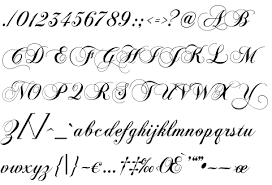 ./0123456789:;<=>?@AB
CDEFGHIJKLM
NOPQRSTUVWXY
Z[\]^_`abcdefghijklmnopqrstu
vwxyz{|}~€…†‡‰Œ‘’“”•–—œ